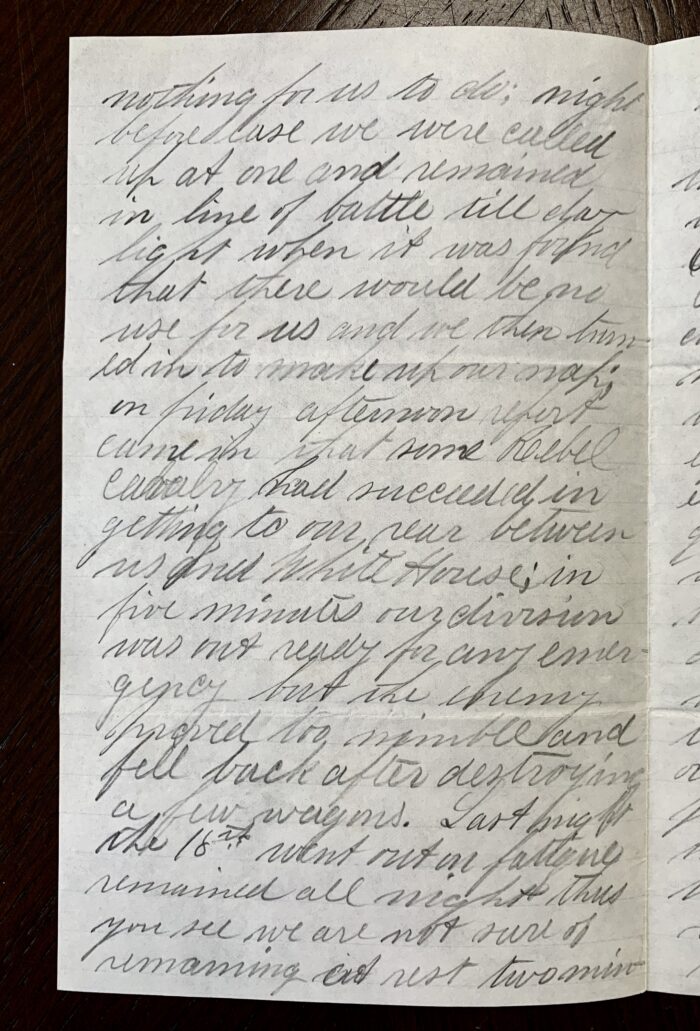 nothing for us to do; night
before last we were called
up at one and remained
in line of battle till day
light when it was found
that there would be no
use for us and we then turn-
ed in to make up our nap;
on friday afternoon report
came in that some Rebel
Cavalry had succeeded in
getting to our rear between
us and White House; in
five minutes our division
was out ready for any emer-
gency but the enemy
proved too nimble and
fell back after destroying
a few wagons. Last night
the 16th went out on fatigue
remained all night thus
you see we are not sure of
remaining at rest two min